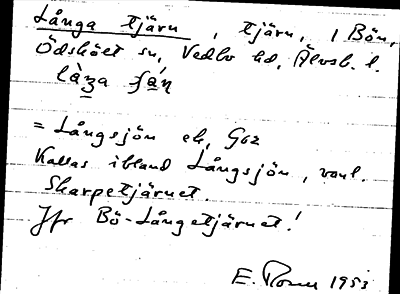 Långa tjärn, tjärn, i Bön,
Ödskölt sn, Vedbo hd, Älvsb. l.
= Långsjön ek,
Kallas ibland Långsjön, vanl.
Skarpetjärnet.
Jfr Bö-Långetjärnet!
E. 1953